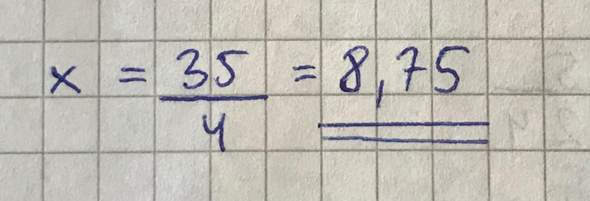 x = 35/4 = 8,75